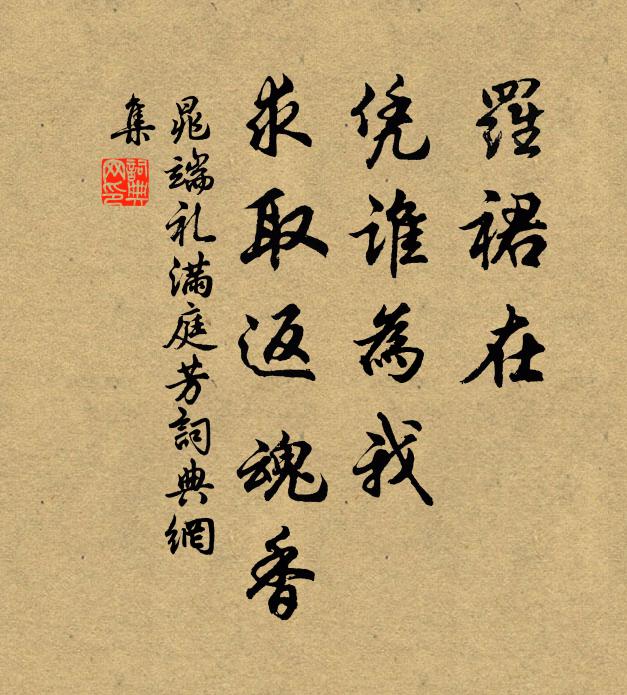 羅裙在
凭誰為我
求取返魂香
晁端礼满庭芳詞典網
集
詞典
网印